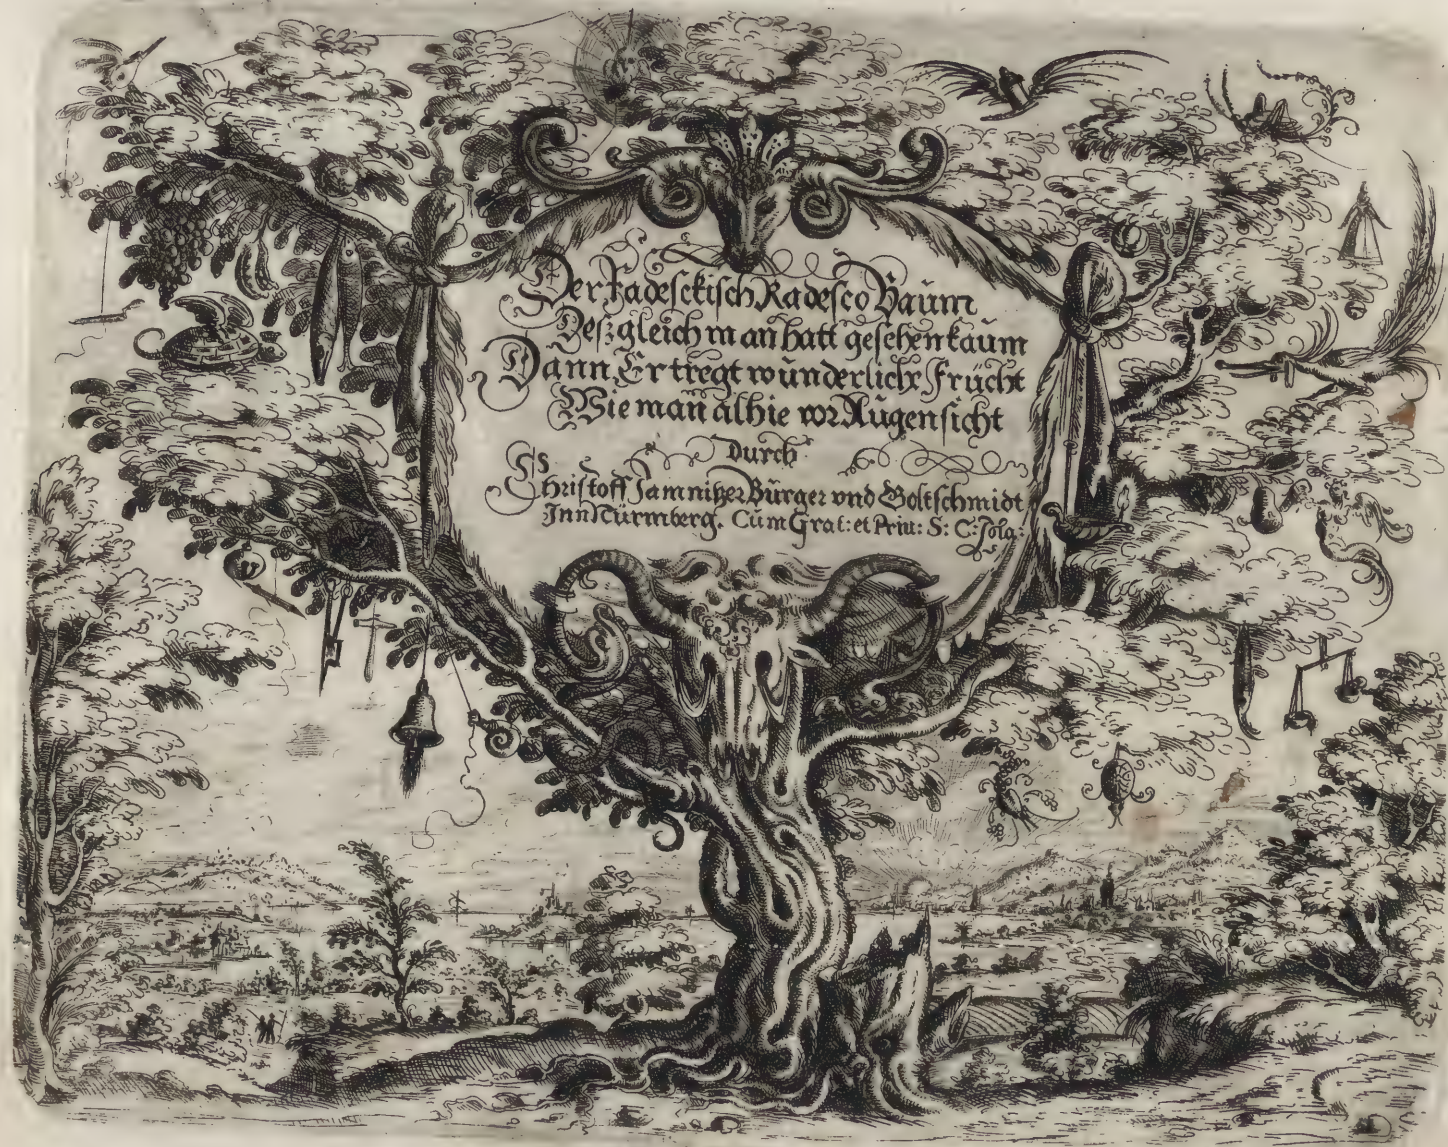 Der Fadesckisch Radesco Baum
Deszgleich man hatt gesehen kaum
Dann Er tregt wunderliche Frücht
Wie man alhie vor Augen sicht
Durch
Christoff Jamnitzer Burger vnd Goltschmidt
Inn Nürmberg. Cum Grat: et Priu: S: C: